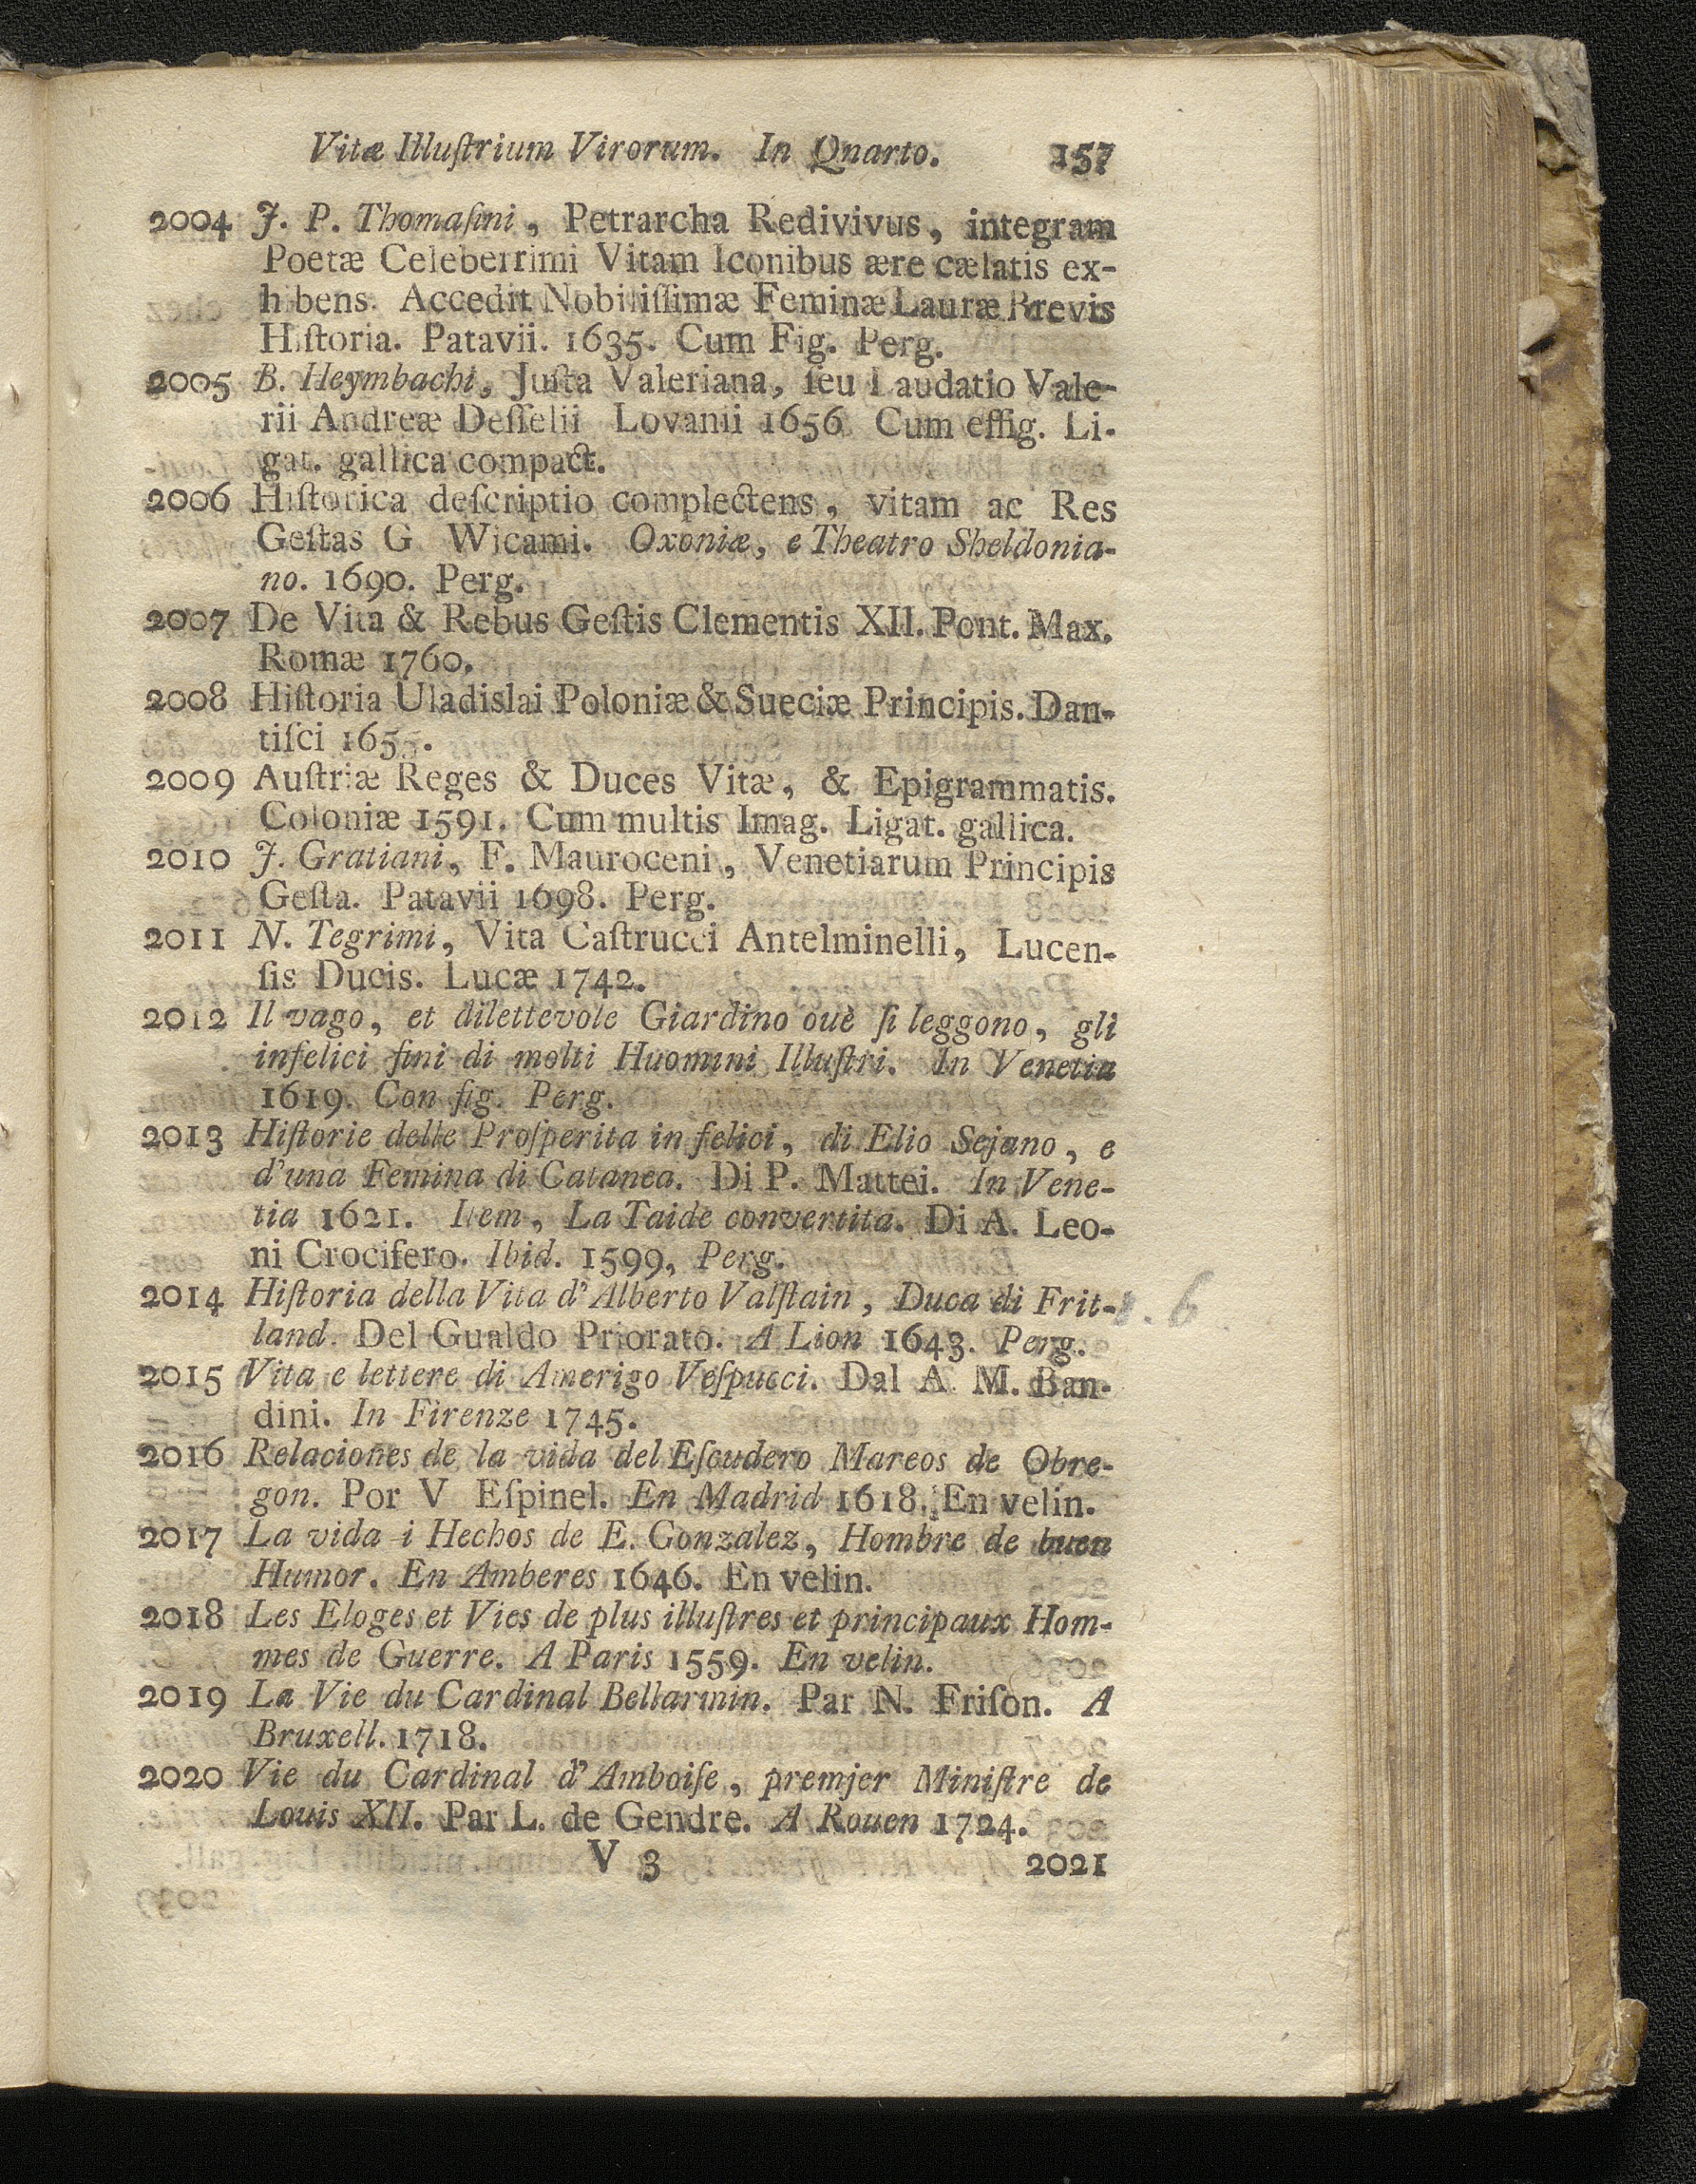 Vitæ Illuſtrium Virorum. In Qnarto. 157
2004 J. P. Thomaſini, Petrarcha Redivivus, integram
Poetæ Celeberrimi Vitam Iconibus ære cælatis ex-
hibens. Accedit Nobiliſſimæ Feminæ Lauræ Brevis
Hiſtoria. Patavii. 1635. Cum Fig. Perg.
2005 B. Heymbachi, Juſta Valeriana, ſeu Laudatio Vale-
rii Andreæ Deſſelii Lovanii 1656 Cum effig. Li-
gat. gallica compact.
2006 Hiſtorica deſcriptio complectens, vitam ac Res
Geſtas G Wicami. Oxoniæ, e Theatro Sheldonia-
no. 1690. Perg.
2007 De Vita & Rebus Geſtis Clementis XII. Pont. Max.
Romæ 1760.
2008 Hiſtoria Uladislai Poloniæ & Sueciæ Principis. Dan-
tiſci 1655.
2009 Auſtriæ Reges & Duces Vitæ, & Epigrammatis.
Coloniæ 1591. Cum multis Imag. Ligat. gallica.
2010 J. Gratiani, F. Mauroceni, Venetiarum Principis
Geſta. Patavii 1698. Perg.
2011 N. Tegrimi, Vita Caſtrucci Antelminelli, Lucen-
ſis Ducis. Lucæ 1742.
2012 Il vago, et dilettevole Giardino ouè ſi leggono, gli
infelici fini di molti Huomini Illuſtri. In Venetia
1619. Con fig. Perg.
2013 Hiſtorie delle Proſperita in felici, di Elio Sejano, e
d'una Femina di Catanea. Di P. Mattei. In Vene-
tia 1621. Item, La Taide convertita. Di A. Leo-
ni Crocifero. Ibid. 1599, Perg.
2014 Hiſtoria della Vita d'Alberto Valſtain, Duca di Frit-
land. Del Gualdo Priorato. A Lion 1643. Perg.
2015 Vita e lettere di Amerigo Veſpucci. Dal A. M. Ban-
dini. In Firenze 1745.
2016 Relaciones de la vida del Eſcudero Mareos de Obre-
gon. Por V Eſpinel. En Madrid 1618. En velin.
2017 La vida i Hechos de E. Gonzalez, Hombre de buen
Humor. En Amberes 1646. En velin.
2018 Les Eloges et Vies de plus illuſtres et principaux Hom-
mes de Guerre. A Paris 1559. En velin.
2019 La Vie du Cardinal Bellarmin. Par N. Friſon. A
Bruxell. 1718.
2020 Vie du Cardinal d'Amboiſe, premjer Miniſtre de
Louis XII. Par L. de Gendre. A Rouen 1724.
V 3 2021